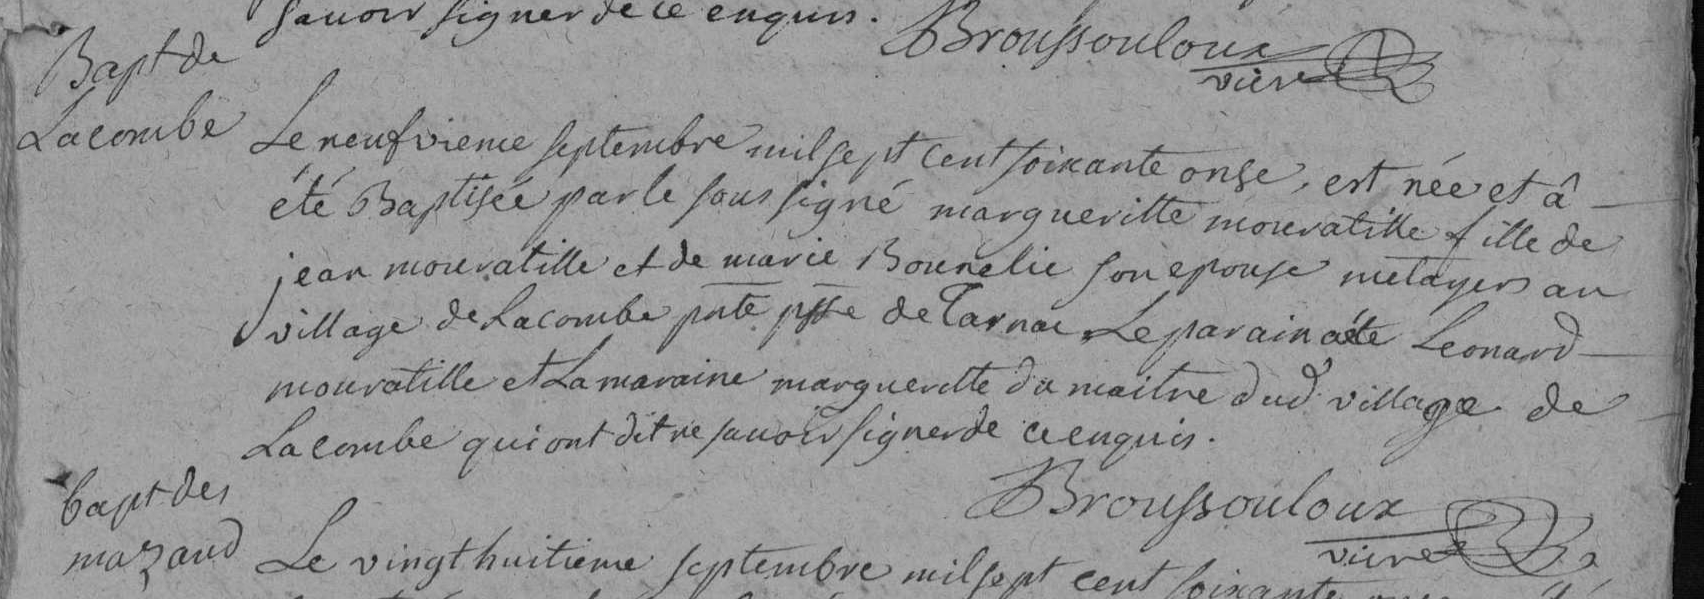 savoir signer de ce enquis.
Broussouloux
vicre
Bapt de
Lacombe
Le neufvieme septembre mil sept cent soixante onse, est née et â
été Baptisée par le sous signé margueritte mouratille fille de
jean mouratille et de marie Bounelie son epouse metayers au
village de Lacombe pnte psse de Tarnac, Le parain a été Leonard
mouratille et La maraine marguerite du maitre dud. village de
Lacombe qui ont dit ne savoir signer de ce enquis.
Broussouloux
vicre
bapt des
mazaud
Le vingt huitieme septembre mil sept cent soixante